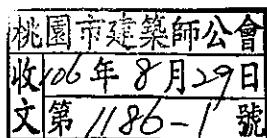 桃園市建築師公會
收106年8月29日
文第1186-1號